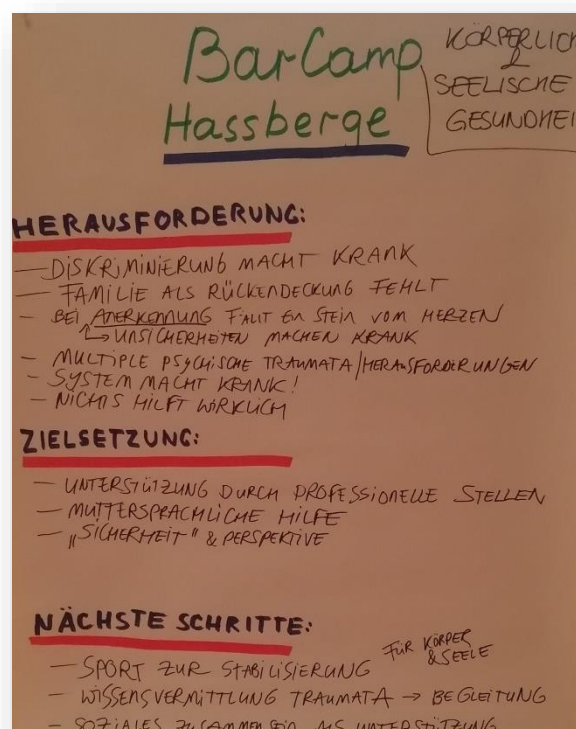 BarCamp
Hassberge
KÖRPERLICH
&
SEELISCHE
GESUNDHEI
HERAUSFORDERUNG:
— DISKRIMINIERUNG MACHT KRANK
— FAMILIE ALS RÜCKENDECKUNG FEHLT
- BEI ANERKENNUNG FÄLLT EIN STEIN VOM HERZEN
↳ UNSICHERHEITEN MACHEN KRANK
- MULTIPLE PSYCHISCHE TRAUMATA/HERAUSFORDERUNGEN
- SYSTEM MACHT KRANK!
- NICHTS HILFT WIRKLICH
ZIELSETZUNG:
— UNTERSTÜTZUNG DURCH PROFESSIONELLE STELLEN
— MUTTERSPRACHLICHE HILFE
— „SICHERHEIT" & PERSPEKTIVE
NÄCHSTE SCHRITTE:
— SPORT ZUR STABILISIERUNG FÜR KÖRPER
& SEELE
- WISSENSVERMITTLUNG TRAUMATA → BEGLEITUNG
- SOZIALES ZUSAMMENSEIN ALS UNTERSTÜTZUNG